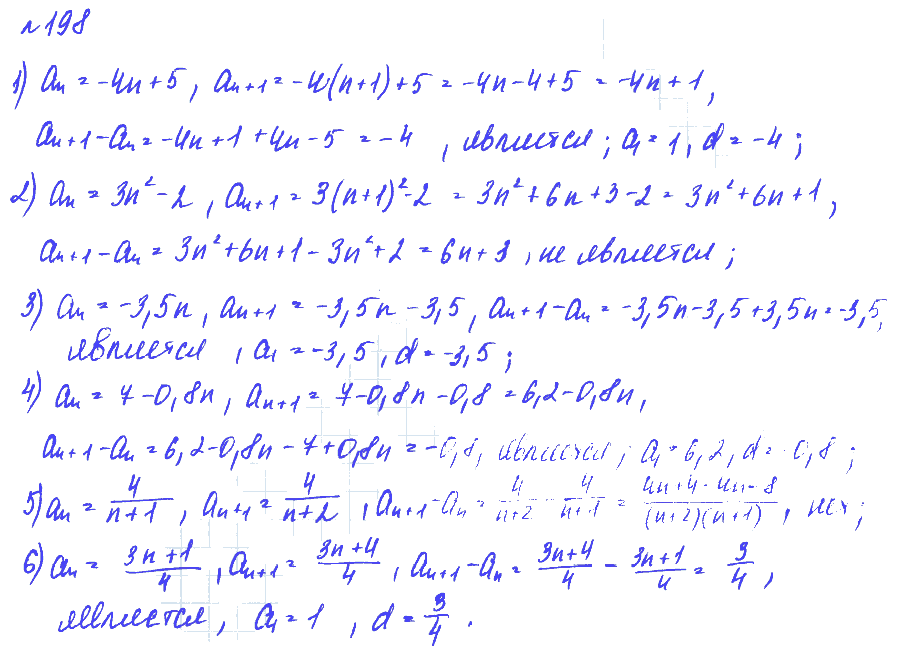 №198
1) aₙ = -4n+5, aₙ₊₁ = -4(n+1)+5 = -4n-4+5 = -4n+1,
aₙ₊₁-aₙ = -4n+1+4n-5 = -4, является; a₁ = 1, d = -4;
2) aₙ = 3n²-2, aₙ₊₁ = 3(n+1)²-2 = 3n²+6n+3-2 = 3n²+6n+1,
aₙ₊₁-aₙ = 3n²+6n+1-3n²+2 = 6n+3, не является;
3) aₙ = -3,5n, aₙ₊₁ = -3,5n-3,5, aₙ₊₁-aₙ = -3,5n-3,5+3,5n = -3,5,
является, a₁ = -3,5, d = -3,5;
4) aₙ = 7-0,8n, aₙ₊₁ = 7-0,8n-0,8 = 6,2-0,8n,
aₙ₊₁-aₙ = 6,2-0,8n-7+0,8n = -0,8, является; a₁ = 6,2, d = -0,8;
5) aₙ = 4/(n+1), aₙ₊₁ = 4/(n+2), aₙ₊₁-aₙ = 4/(n+2) - 4/(n+1) = (4n+4-4n-8)/((n+2)(n+1)), нет;
6) aₙ = (3n+1)/4, aₙ₊₁ = (3n+4)/4, aₙ₊₁-aₙ = (3n+4)/4 - (3n+1)/4 = 3/4,
является, a₁ = 1, d = 3/4.